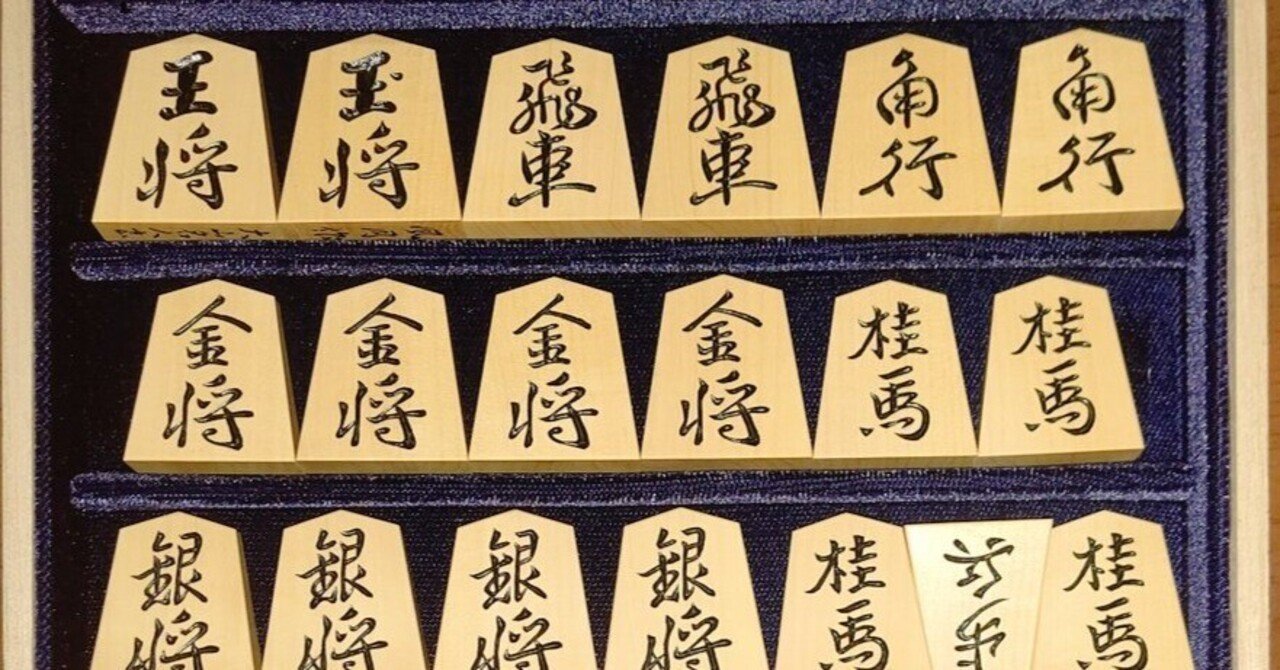 王将 玉将 飛車 飛車 角行 角行
金将 金将 金将 金将 桂馬 桂馬
銀将 銀将 銀将 銀将 桂馬 歩兵 桂馬